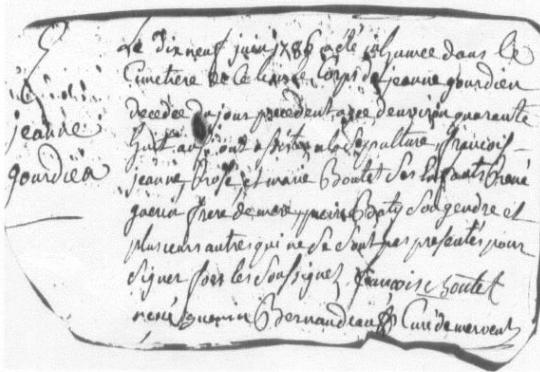 jeanne
gourdien
Le dix neuf juin 1786 a été inhumée dans le
Cimetiere de ce lieu le Corps de jeanne gourdien
decedée du jour precedent agée denviron quarante
huit ans ont assistes a la sepulture, françois
jeanne, Rose, et marie Boutet Ses Enfants, René
guerin frere de mere, pierre Baty Son gendre et
plusieurs autres qui ne Se Sont pas presentés pour
Signer fors les Soussignez. françoise boutet
rené guerin Bernaudeau Curé de mervent